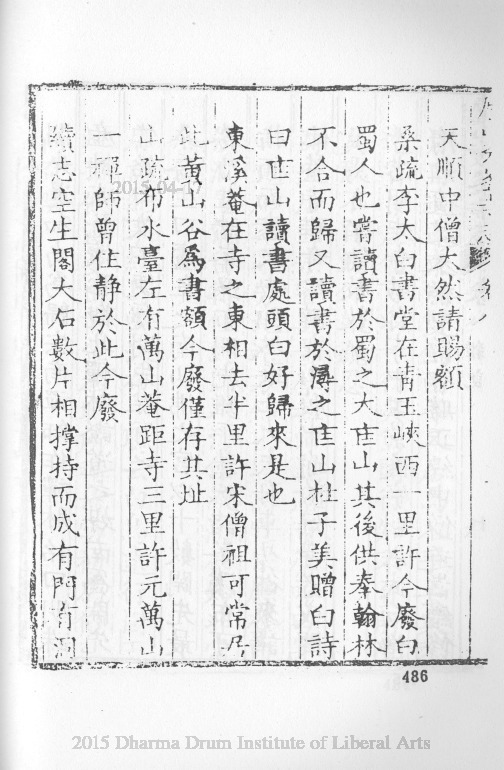 天順中僧大然請賜額
桑疏李太白書堂在青玉峽西一里許今廢白
蜀人也嘗讀書於蜀之大匡山其後供奉翰林
不合而歸又讀書於潯之匡山杜子美贈白詩
曰匡山讀書處頭白好歸來是也
東溪菴在寺之東相去半里許宋僧祖可常居
此黄山谷爲書額今廢僅存其址
山疏布水臺左有萬山菴距寺三里許元萬山
一禪師曾住静於此今廢
續志空生閣大石數片相撑持而成有門有洞
486
2015-04-17
2015 Dharma Drum Institute of Liberal Arts